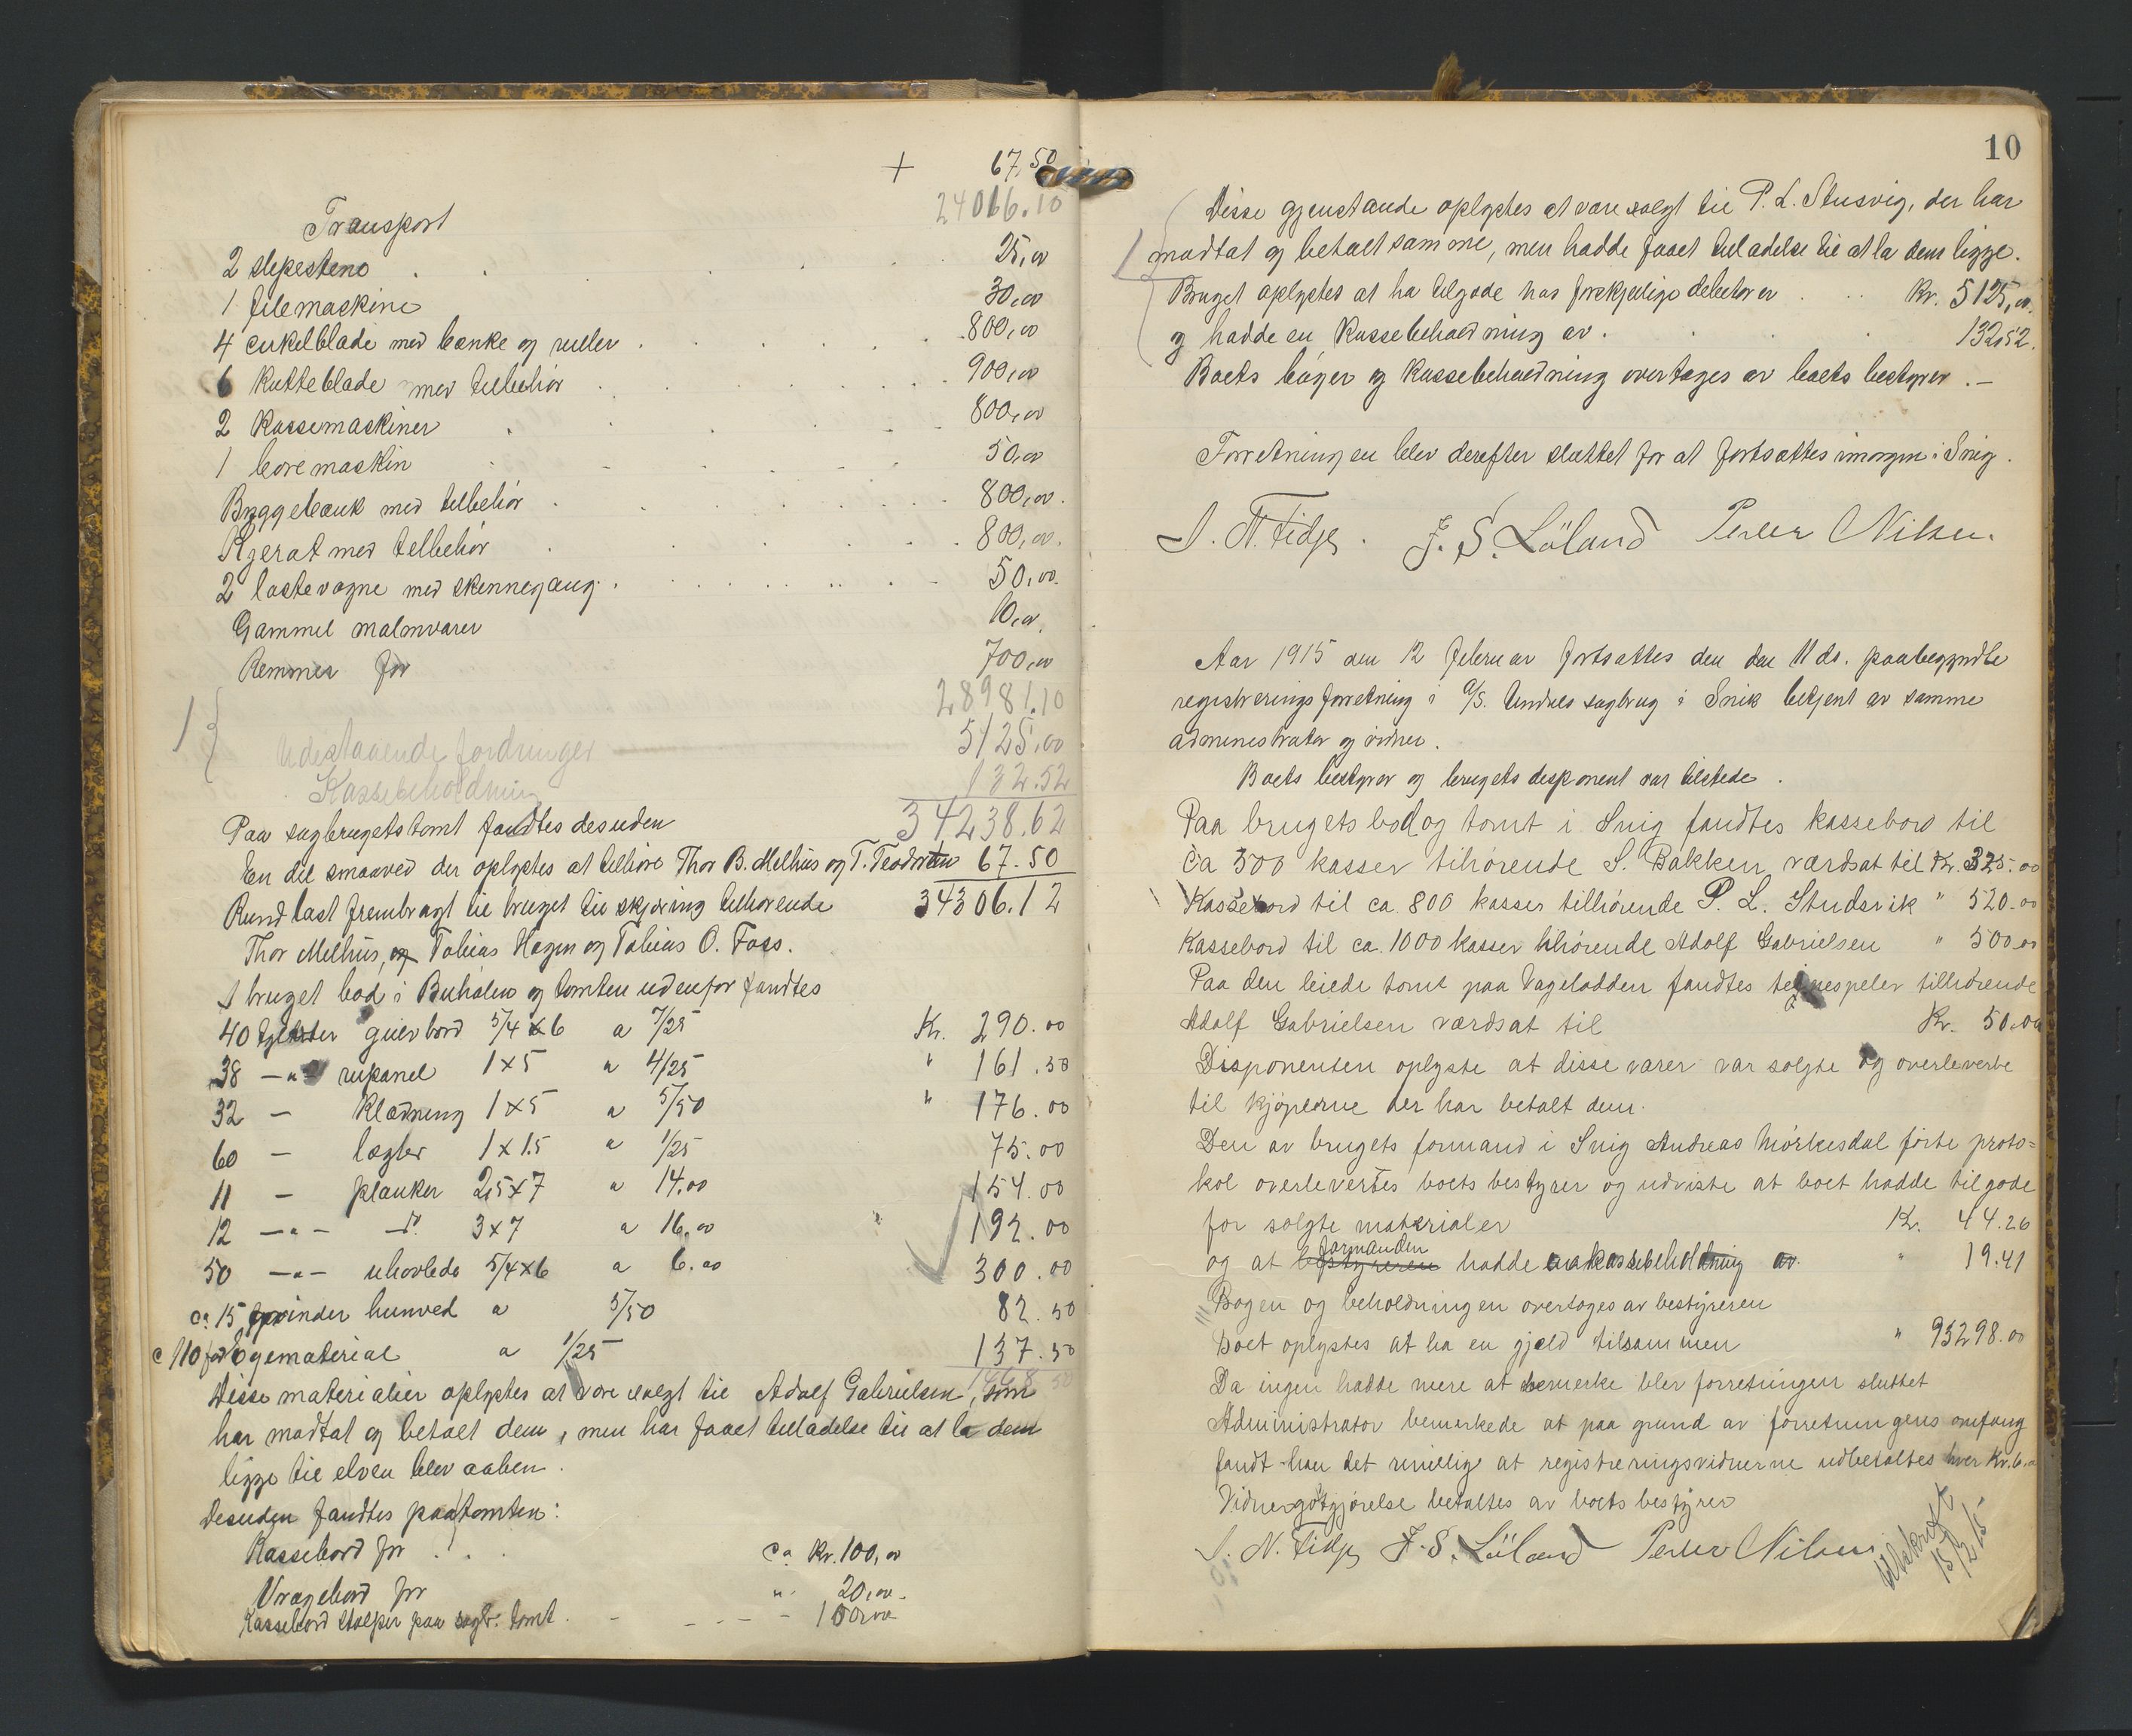 + 67,50
24016.10
Transport
2 slepestene 25,00
1 filemaskine 30,00
4 cirkelblade med bænke og ruller 800,00
6 Kutteblade med tilbehör 900,00
2 Kassemaskiner 800,00
1 boremaskin 50,00
Byggebænk med tilbehör 800,00
Kjerat med tilbehör 800,00
2 lastevogne med skinnegang 50,00
Gammel malmvarer 10,00
Remmer for 700,00
28981.10
1 Udestaaende fordringer 5125,00
Kassebeholdning 132.52
34238.62
Paa sagbrugets tomt fandtes desuden
En del smaaved der oplystes at tilhöre Thor B. Melhus og T. 67.50
34306.12
Rundlast frembragt til bruget til skjæring tilhörende
Thor Melhus, og Tobias Hagen og Tobias O. Foss.
I bruget bod i og tomten udenfor fandtes
40 tylvter gulvbord 5/4 x 6 a 7/25 Kr. 290.00
38 -"- rupanel 1 x 5 a 4/25 " 161.50
32 - Klædning 1 x 5 a 5/50 " 176.00
60 - lægter 1 x 1.5 a 1/25 75.00
11 - planker 2,5 x 7 a 14.00 154.00
12 -"- do. 3 x 7 a 16,00 " 192.00
50 -"- uhövlede 5/4 x 6 a 6.00 300.00
ca 15 hunved a 5/50 82.50
c 110 a 1/25 137.50
1468.50
Disse materialier oplystes at være solgt til Adolf Gabrielsen, som
har modtat og betalt dem, men har faaet tilladelse til at la dem
ligge til elven blev aaben.
Desuden fandtes paa tomten:
Kassebord for ca Kr. 100,00
Vragbord for " 20,00
Kassebord stolper paa sagbr. tomt 100,00
10
Disse gjenstande oplystes at være solgt til P. L. Stusvig, der har
modtat og betalt samme, men hadde faaet tilladelse til at la dem ligge.
1 Bruget oplystes at ha tilgode hos forskjellige debitorer Kr. 5125,00
og hadde en Kassebeholdning av 132,52.
Boets böger og Kassebeholdning overtages av boets bestyrer.-
Forretningen blev derefter sluttet for at fortsættes imorgen i Snig.
S. N. Fidje. J. S. Löland Peder Nilsen.
Aar 1915 den 12 februar fortsattes den den 11 ds. paabegyndte
registreringsforretning i A/S. Undals sagbrug i Snik betjent av samme
administrator og vidner.
Boets bestyrer og brugets disponent var tilstede.
Paa brugets bod og tomt i Snig fandtes kassebord til
ca 500 kasser tilhörende S. Bakken værdsat til Kr. 325.00
Kassebord til ca. 800 kasser tillhörende P. L. Studsvik " 520.00
Kassebord til ca. 1000 kasser tilhörende Adolf Gabrielsen " 500.00
Paa den leiede tomt paa Vageladden fandtes tillhörende
Adolf Gabrielsen værdsat til Kr. 50.00
Disponenten oplyste at disse varer var solgte og overleverte
til kjöperne der har betalt dem.
Den av brugets formand i Snig Andreas Mörkesdal förte proto=
kol overlevertes boets bestyrer og udviste at boet hadde tilgode
for solgte materialer Kr. 44.26
og at bestyreren formanden hadde en kassebeholdning av " 19.41
Bogen og beholdningen overtoges av bestyreren
Boet oplystes at ha en gjæld tilsammen " 95298.00
Da ingen hadde mere at bemerke blev forretningen sluttet
Administrator bemerkede at paa grund av forretningens omfang
fandt han det rimelig at registreringsvidnerne udbetaltes hver Kr. 6.00
Vidnergodtgjörelse betaltes av boets bestyrer
S. N. Fidje J. S. Löland Peder Nilsen
Utskrift
15/2 15